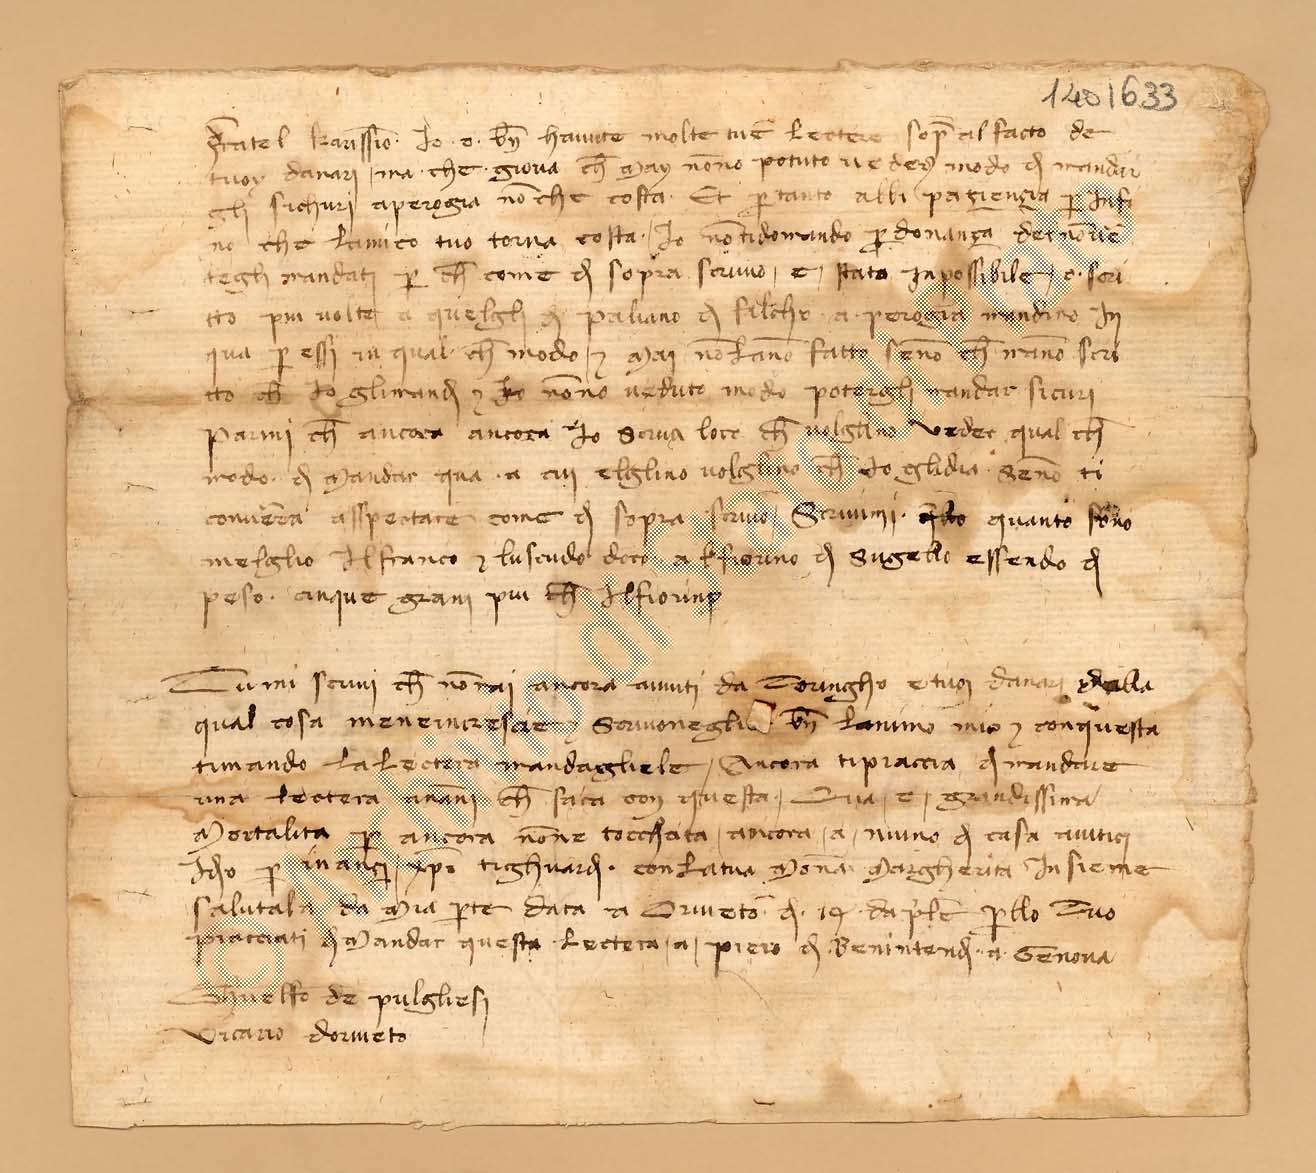 1401633
Fratel karissio. Io .o. bn havute molte tue lectere sop al facto de
tuoy danari / ma . che . giova ch may nono potuto vedere modo di mandar
gli sichuri aperogia no che costa. Et p tanto abbi pazienzia p infi
no che lamico tuo torna costa. Io no tidomando pdonanza
tegli mandati p ch come di sopra scrivo / e / stato inpossibile / o. scri
tto piu volte a quelgli di paliano di a perogia mandino in
qua p essi in qual ch modo / z mai no lano fatto seno ch mano scri
tto ch io glimandi z io nono veduto modo potergli mandar sicuri
parmi ch ancora ancora io scriva loro ch volglino veder qual ch
modo. di mandar qua . a cui elglino volglino ch io glidia. Seno ti
converra asspectare come di sopra scrivo / Scrivimi. quanto sono
melglio il franco z luscudo doro. a lfiorino di sugello essendo di
peso. cinque grani piu ch ilfiorino
Tu mi scrivi ch no mai ancora avuti da Toringho e tuoi danari dalla
qual cosa meneincrescie z Scrivonegli bn lanimo mio z conquesta
timando la lectera mandagliele / Ancora tipiaccia di mandare
una lectera ch sara con questa. / Qua / e / grandissima
Mortalita p ancora none tocchata / ancora / a / niuno di casa avitici
Idio p inanzi / xpo tighuardi. con latua Mona Margherita insieme
salutala da mia pte data a Orvieto di. 19. daple pllo Tuo
piacciati di mandar questa lectera / a / piero di Benintendi . a . Genova
Ghuelfo de pulgliesi
Vicario dorvieto
© Archivio di Stato di Prato